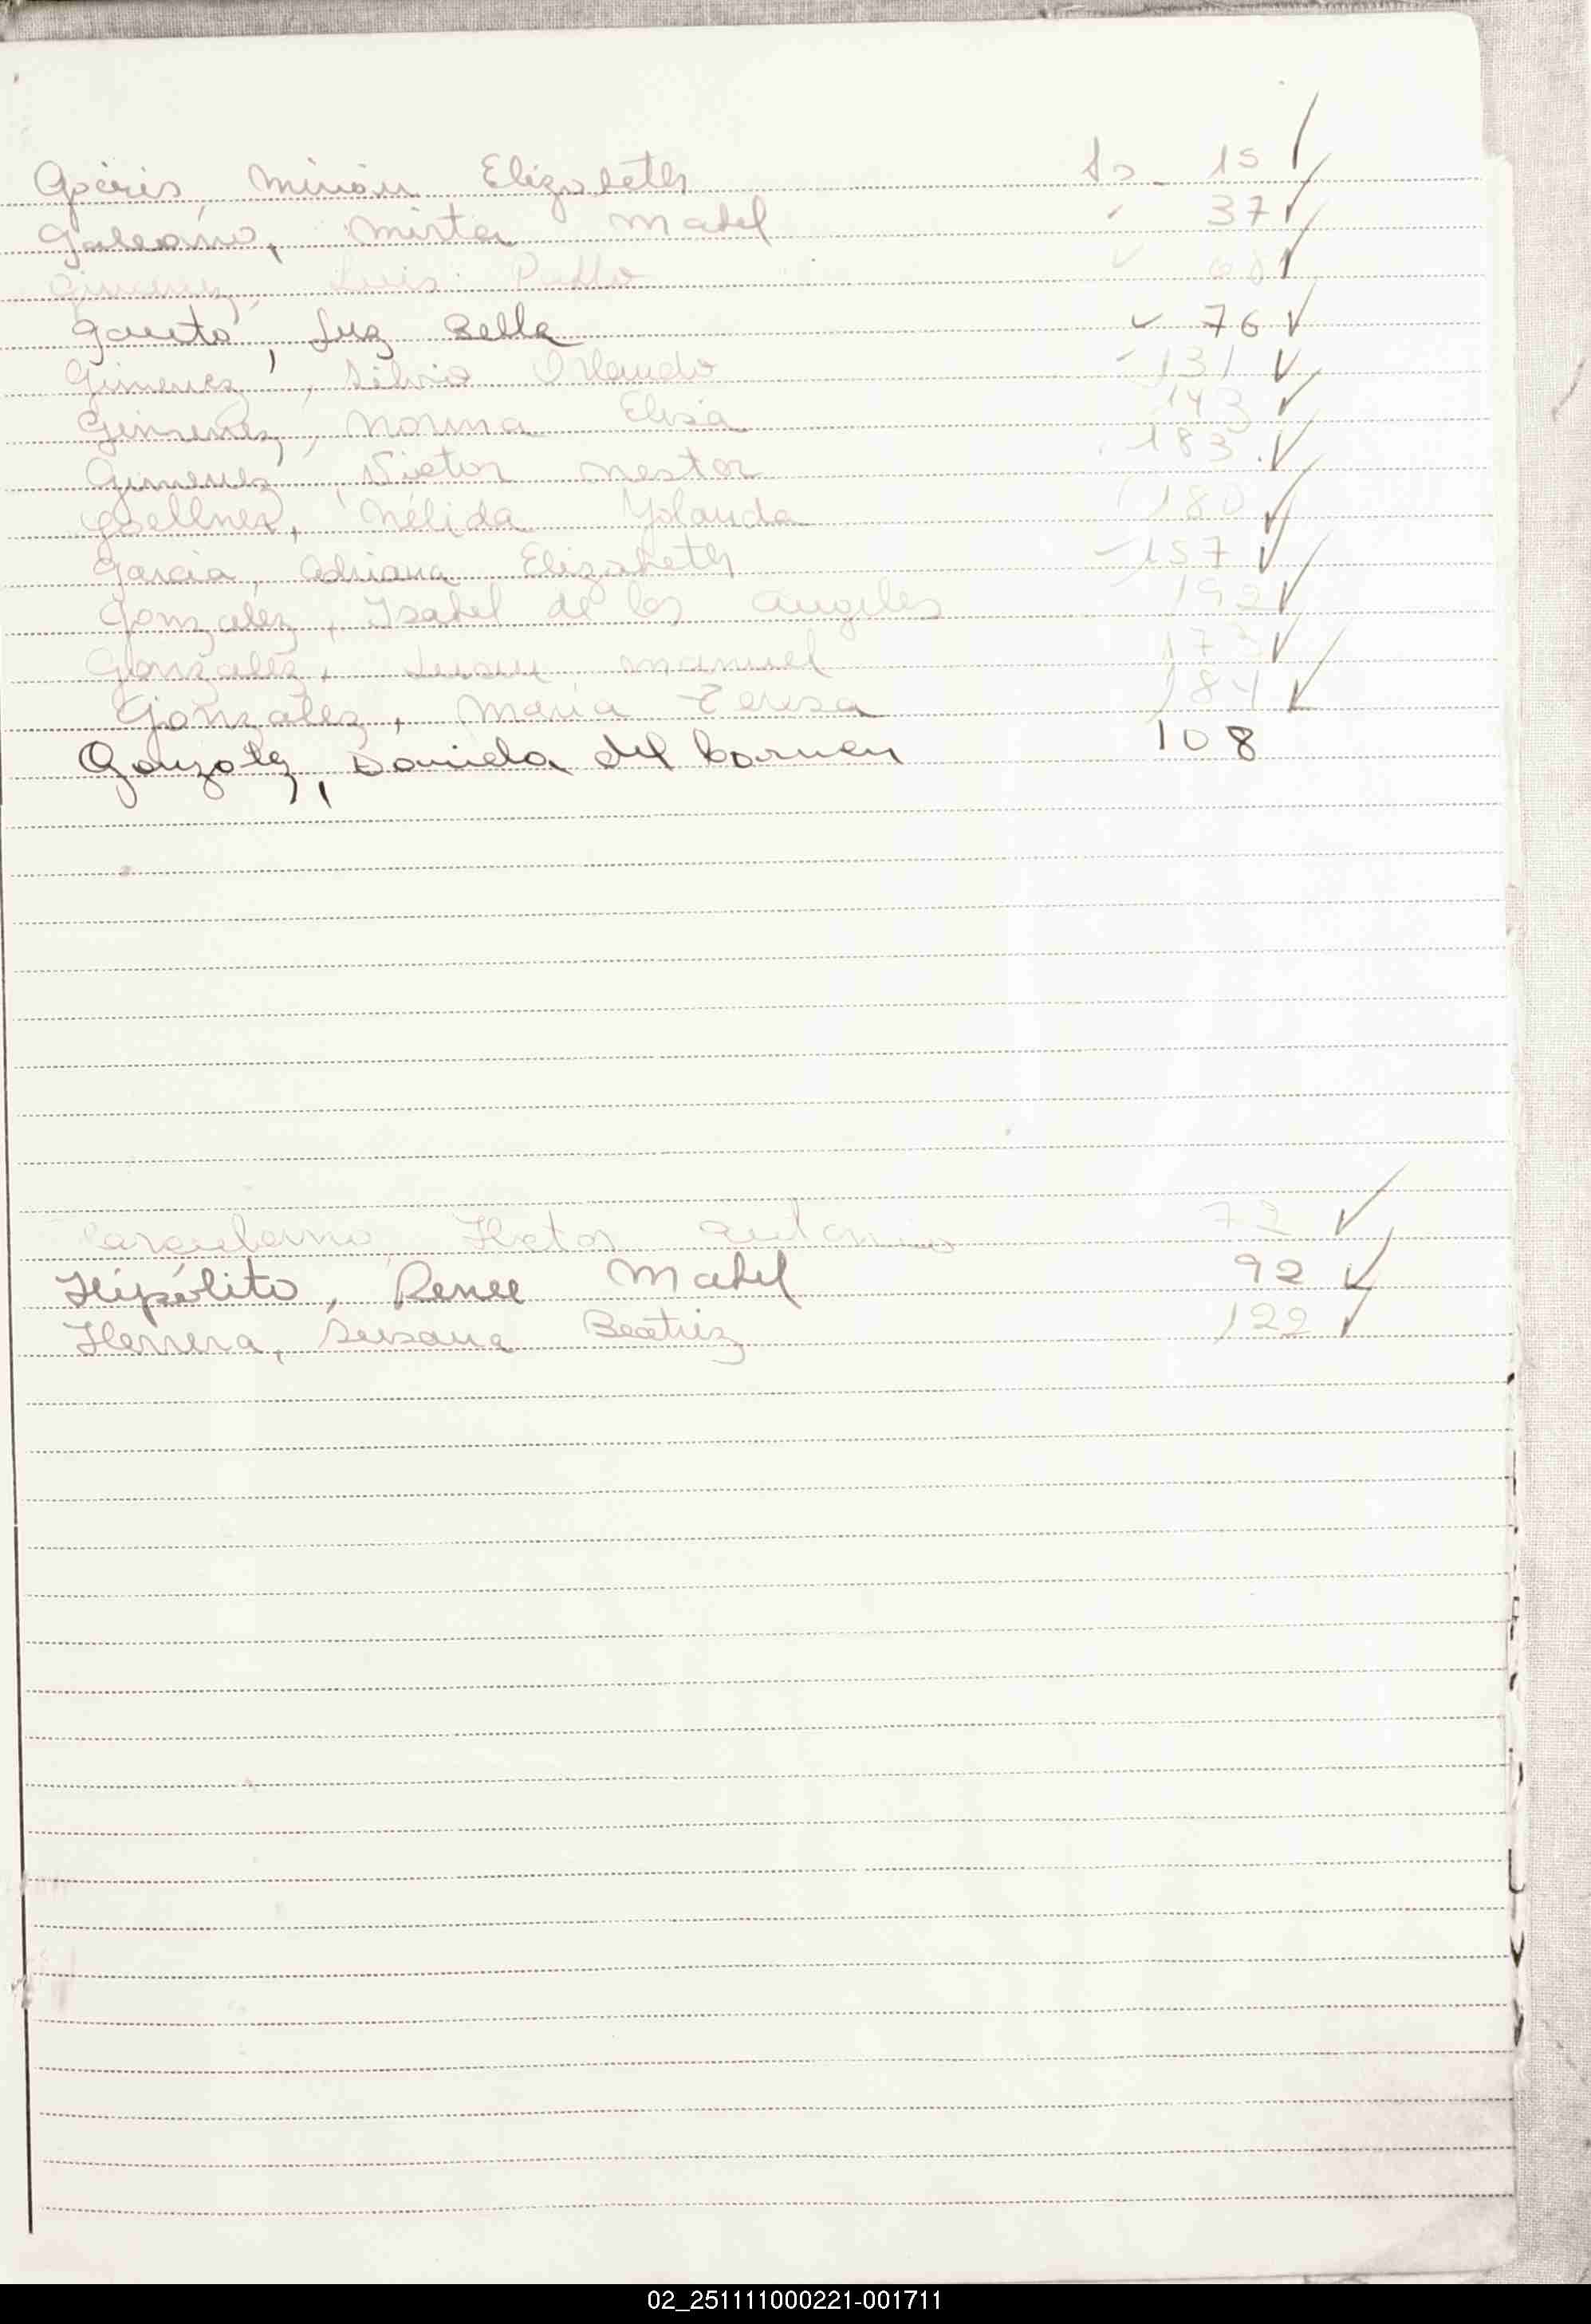 Goiris, Mirian Elizabeth 15
Galeano, Mirta Mabel 37
Gimenez, Luis Pablo
Gauto, Luz Bella 76
Gimenez, Silvio Orlando 131
Gimenez, Norma Elisa 143
Gimenez, Victor Nestor 183
Goellner, Nélida Yolanda 180
Garcia, Adriana Elizabeth 157
Gonzalez, Isabel de los Angeles 192
Gonzalez, Juan Manuel 173
Gonzalez, Maria Teresa 184
Gonzalez, Daniela del Carmen 108
Hector Antonio 72
Hipólito, Renee Mabel 92
Herrera, Susana Beatriz 122
02_251111000221-001711